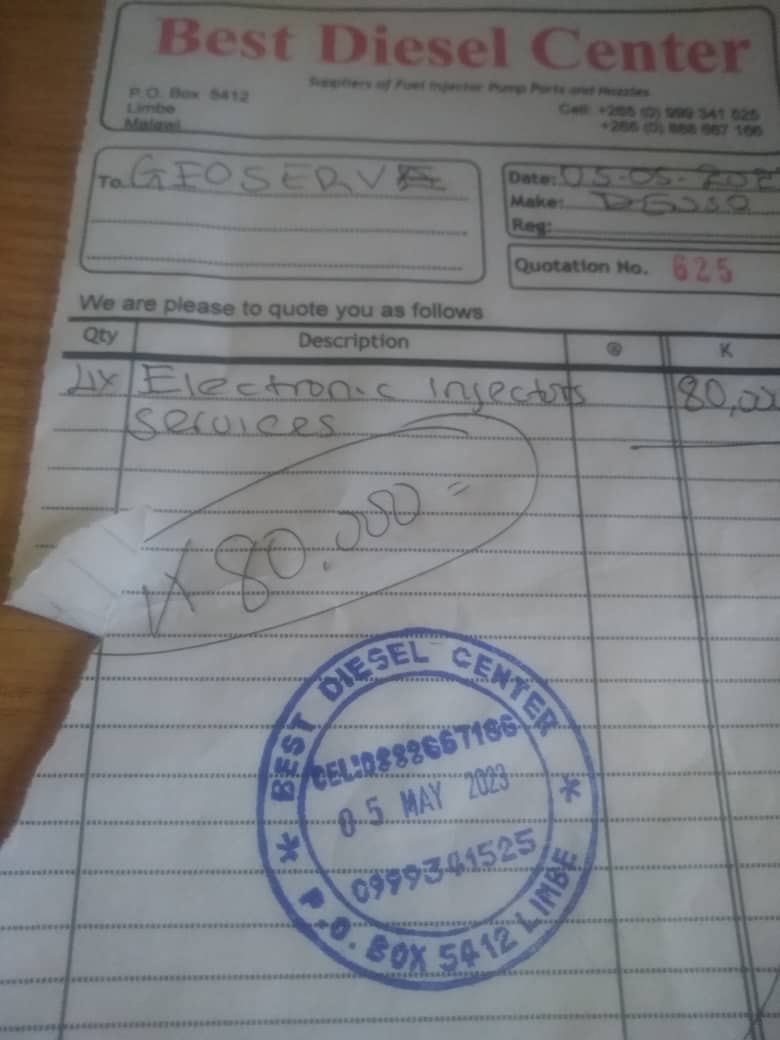 Best Diesel Center
Suppliers of Fuel Injector Pump Parts and Nozzles
P.O. Box 5412
Limbe
Malawi
Cell: +265 (0) 999 341 525
+265 (0) 888 667 166
To GEOSERVE
Date: 05-05-202
Make: DENSO
Reg:
Quotation No. 625
We are please to quote you as follows
Qty Description @ K
4x Electronic injectors 80,00
services
80,000=
BEST DIESEL CENTER
CEL:0888667166
05 MAY 2023
0999341525
P.O. BOX 5412 LIMBE